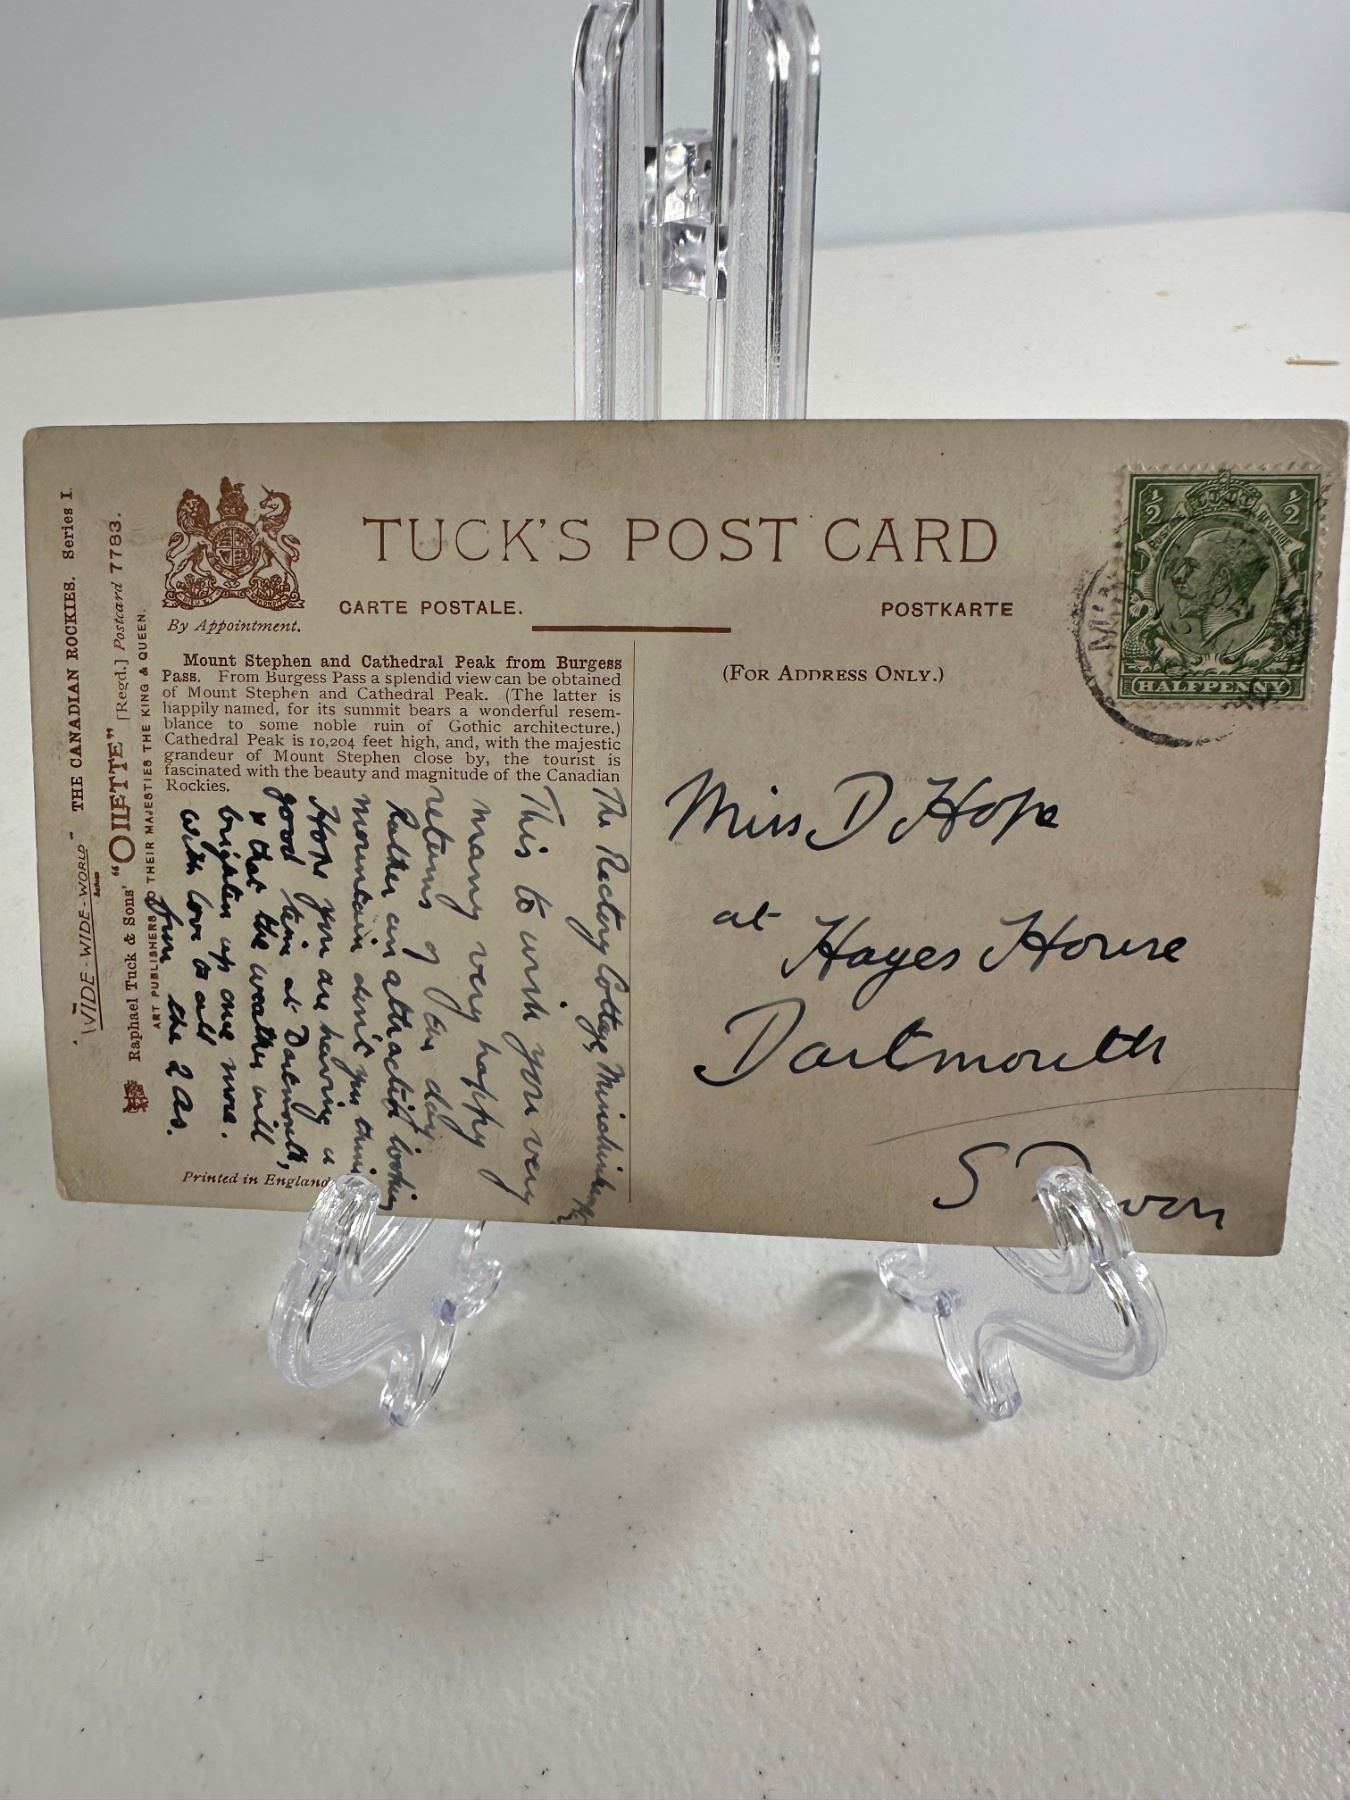 "WIDE-WIDE-WORLD" THE CANADIAN ROCKIES. Series I.
Raphael Tuck & Sons' "OILETTE" [Regd.] Postcard 7783.
ART PUBLISHERS TO THEIR MAJESTIES THE KING & QUEEN.
By Appointment.
TUCK'S POST CARD
CARTE POSTALE.
POSTKARTE
Mount Stephen and Cathedral Peak from Burgess
Pass. From Burgess Pass a splendid view can be obtained
of Mount Stephen and Cathedral Peak. (The latter is
happily named, for its summit bears a wonderful resem-
blance to some noble ruin of Gothic architecture.)
Cathedral Peak is 10,204 feet high, and, with the majestic
grandeur of Mount Stephen close by, the tourist is
fascinated with the beauty and magnitude of the Canadian
Rockies.
The Rectory Cottage,
This to wish you very
many very happy
returns of day.
Rather an attractive looking
mountain don't you think
Hope you are having a
good time at Dartmouth,
& that the weather will
brighten up once more.
With love to all
from the 2 As.
Printed in England
(FOR ADDRESS ONLY.)
½ ½
POSTAGE REVENUE
HALFPENNY
Miss D Hope
at Hayes House
Dartmouth
S Devon